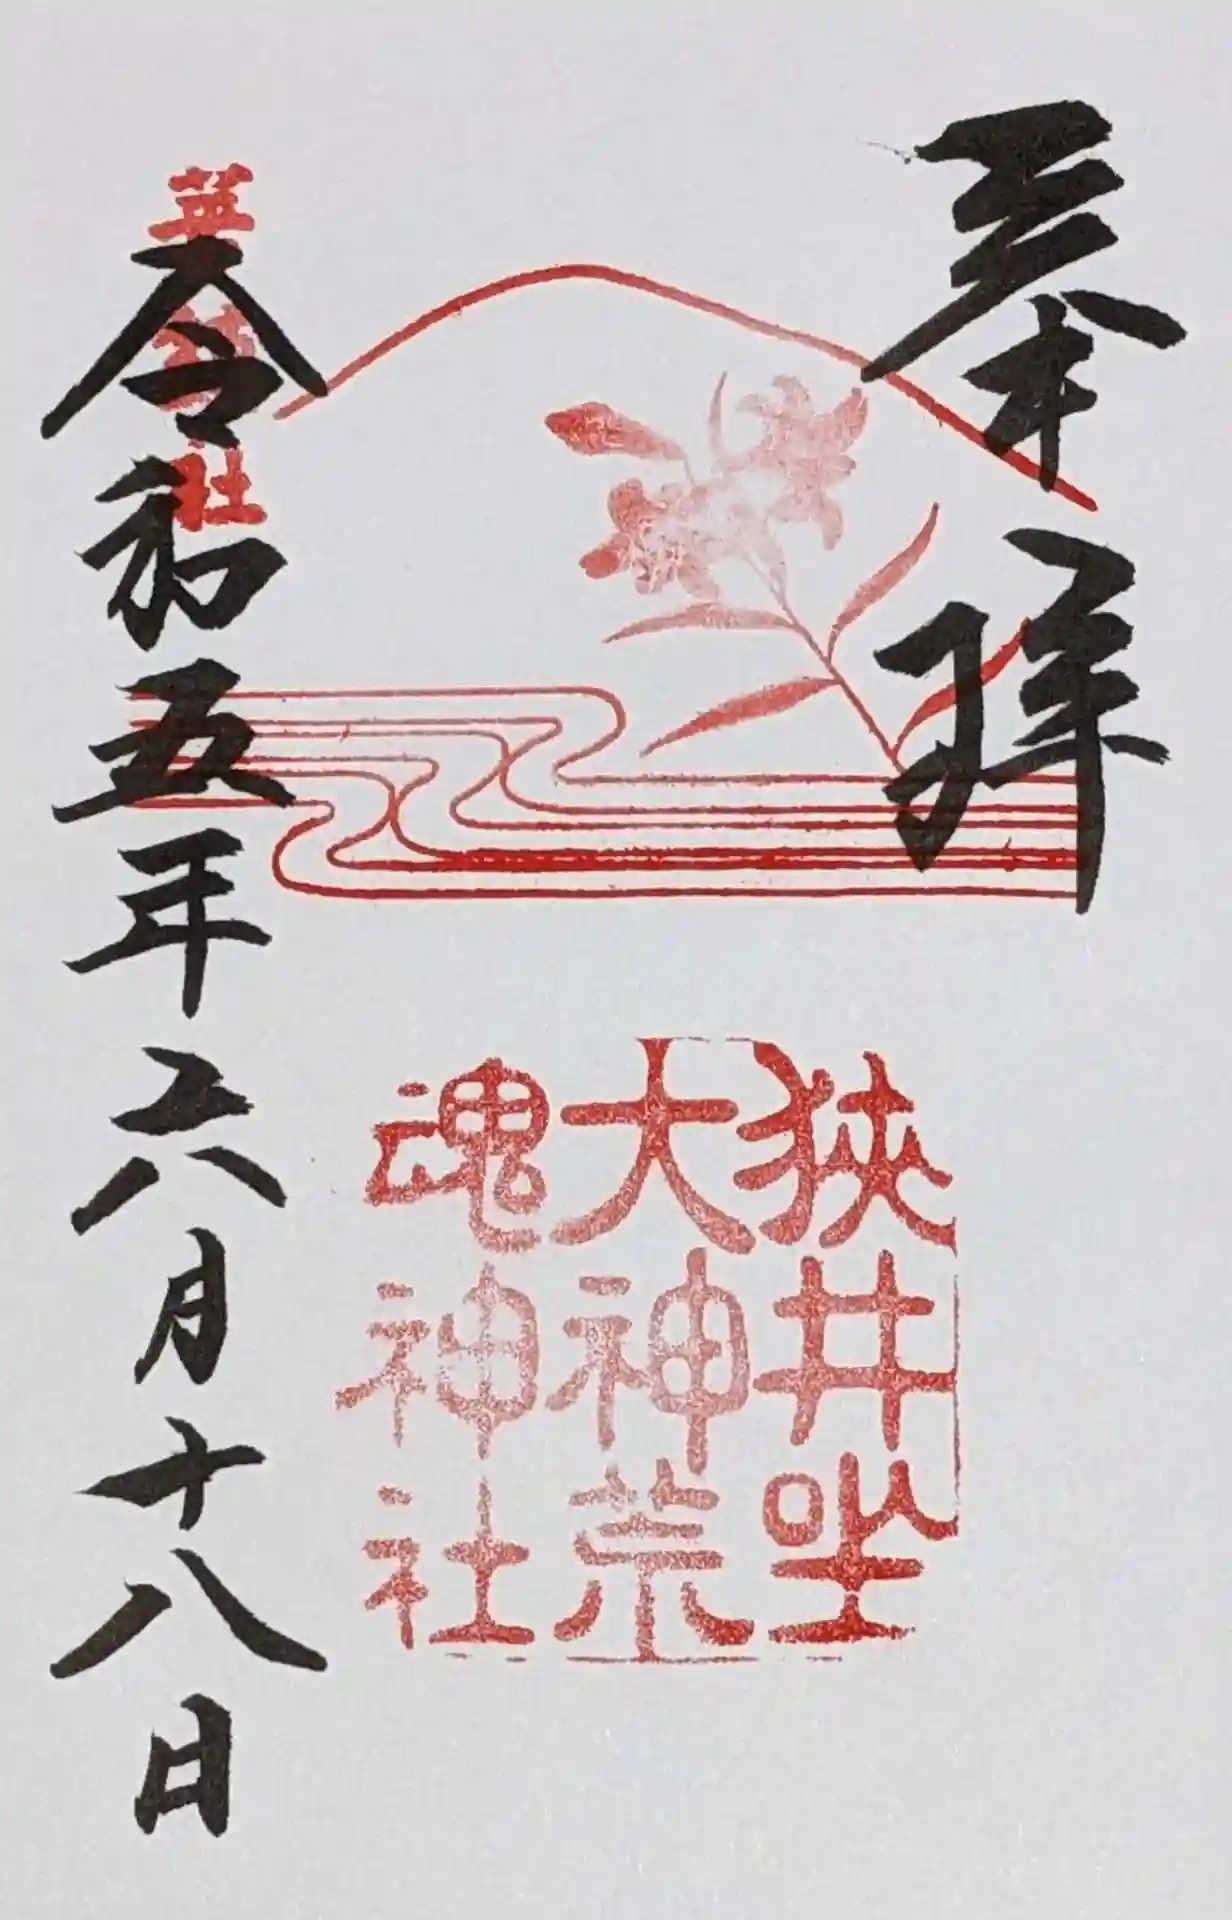 奉拝
狹井坐
大神荒
魂神社
華社
令和五年六月十八日